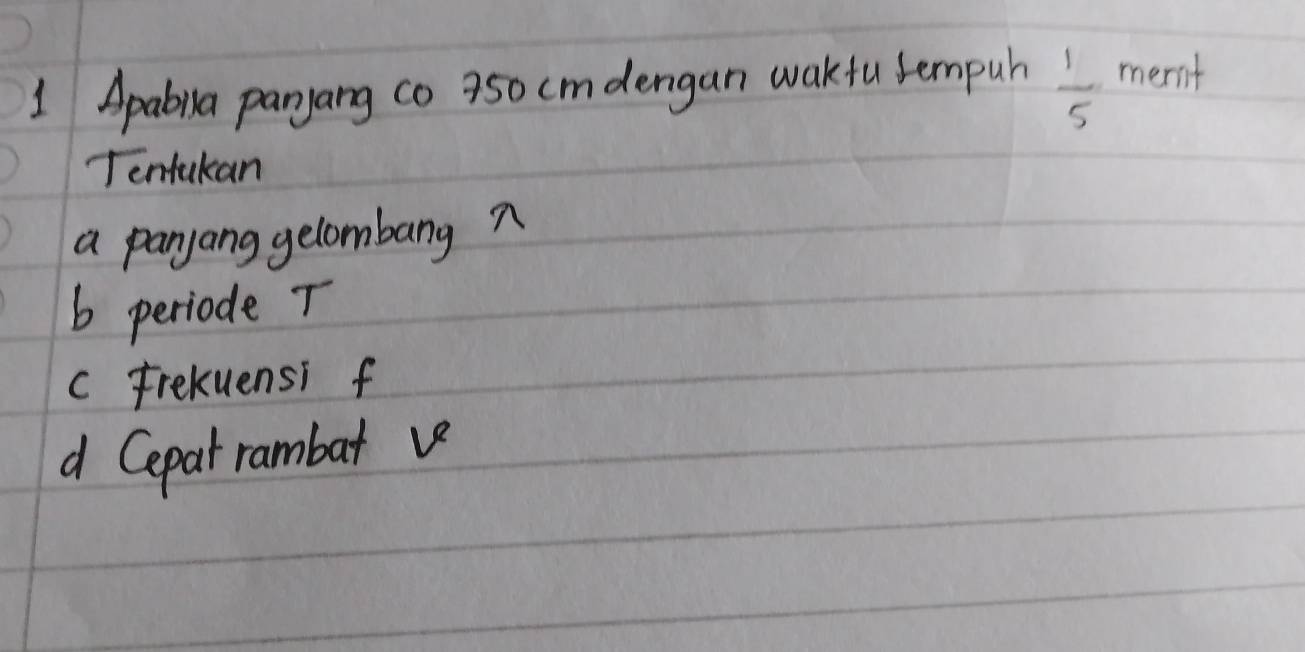 1 Apabila panjang co 750 cm dengan waktu tempuh 1/5 menit
Tentukan
a panjang gelombang λ
b periode T
c Frekuensi f
d Cepat rambat v